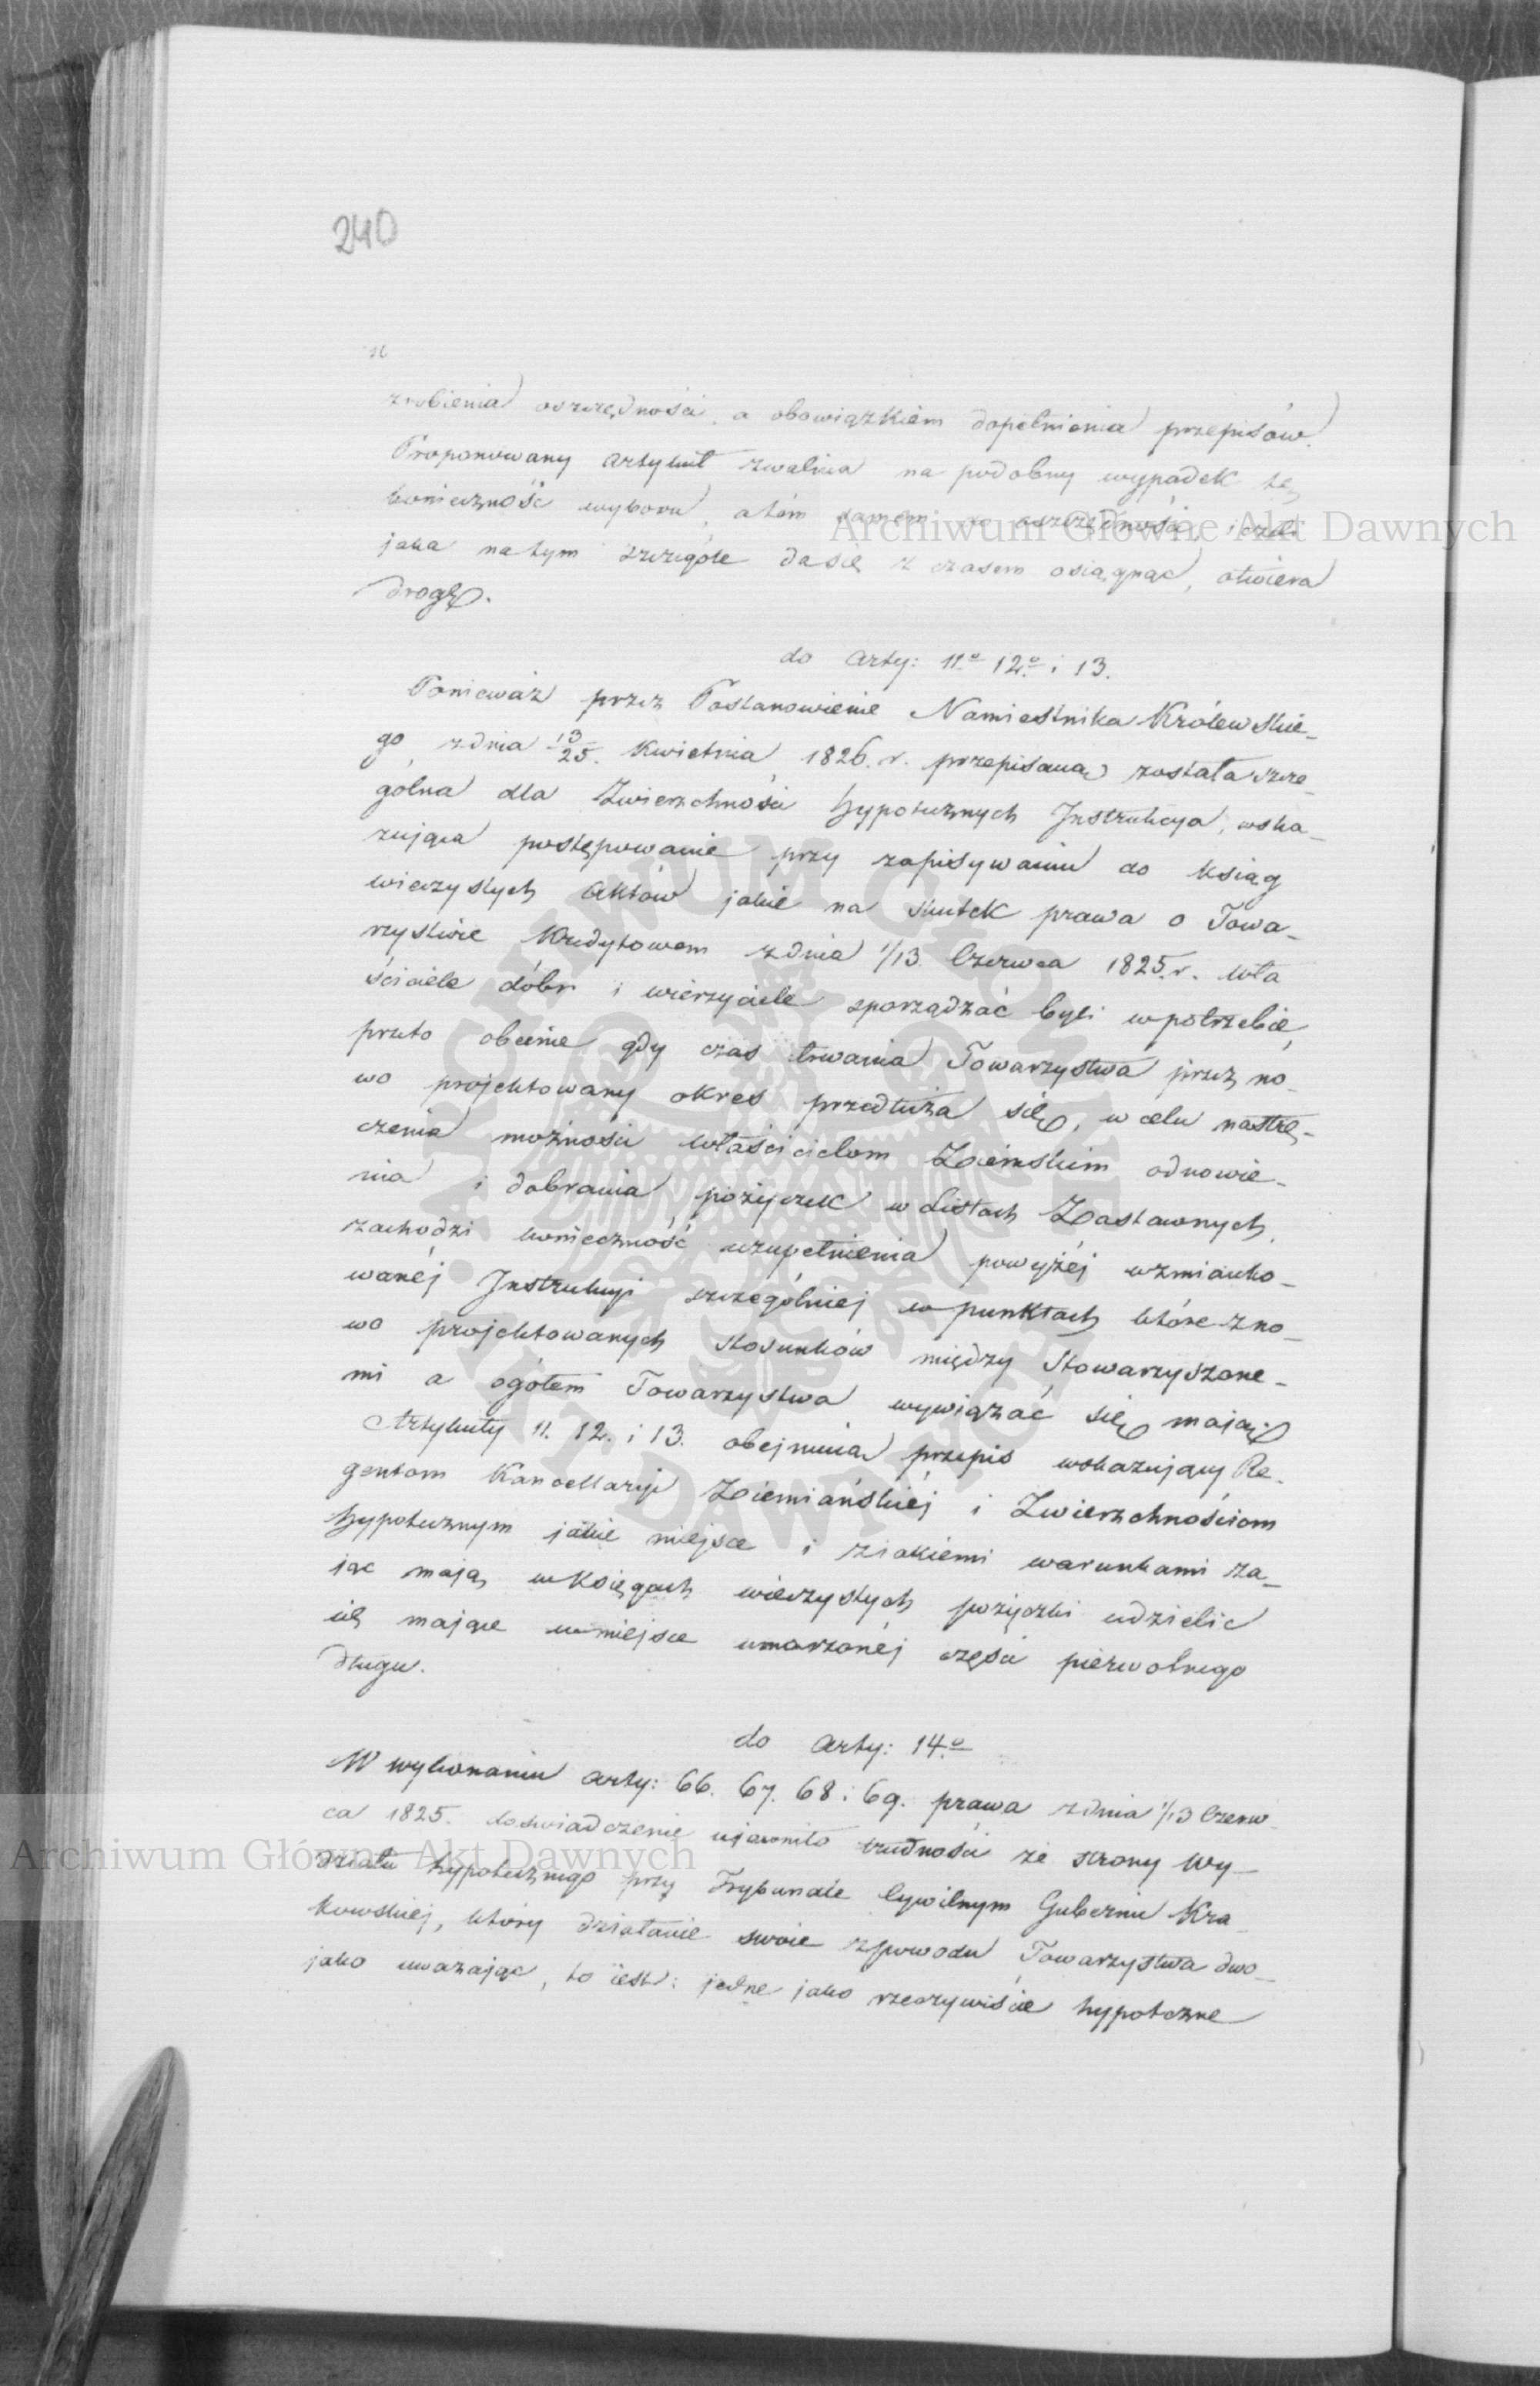 240
zrobienia oszczędności, a obowiązkiem dopełnienia przepisów.
Proponowany artykuł zwalnia na podobny wypadek tę
konieczność wyboru, a tém samem do oszczędności
jaka na tym szczególe da się z czasem osiągnąć, otwiera
drogę.
do arty: 11º 12º i 13.
Ponieważ przez Postanowienie Namiestnika Królewskie-
go, z dnia 13/25. Kwietnia 1826. r. przepisaną została szcze-
gólna dla Zwierzchności hypotecznych Instrukcya, wska-
zująca postępowanie przy zapisywaniu do ksiąg
wieczystych aktów jakie na skutek prawa o Towa-
rzystwie Kredytowem z dnia 1/13 Czerwca 1825. r. wła
ściciele dóbr i wierzyciele sporządzać byli w potrzebie,
przeto obecnie gdy czas trwania Towarzystwa przez no-
wo projektowany okres przedłuża się, w celu nastrę-
czenia możności właścicielom Ziemskim odnowie-
nia i dobrania pożyczek w Listach Zastawnych,
zachodzi konieczność uzupełnienia powyżéj wzmianko-
wanéj Instrukcyi szczególniej w punktach które z no-
wo projektowanych stosunków między Stowarzyszone-
mi a ogółem Towarzystwa wywiązać się mają.
Artykuły 11. 12. i 13. obejmują przepis wskazujący Re-
gentom Kancellaryi Ziemiańskiéj i Zwierzchnościom
hypotecznym jakie miejsce i z jakiemi warunkami za-
jąc mają w księgach wieczystych pożyczki udzielić
się mające w miejsce umorzonéj części pierwotnego
długu.
do arty: 14º
W wykonaniu arty: 66. 67. 68 i 69. prawa z dnia 1/13 Czerw
ca 1825. doświadczenie ujawniło trudności ze strony Wy-
działu hypotecznego przy Trybunale Cywilnym Gubernii Kra
kowskiej, który działanie swoie z powodu Towarzystwa dwo-
jako uważając, to iest: jedne jako rzeczywiście hypoteczne
Archiwum Główne Akt Dawnych
Archiwum Główne Akt Dawnych
ARCHIWUM GŁÓWNE AKT DAWNYCH